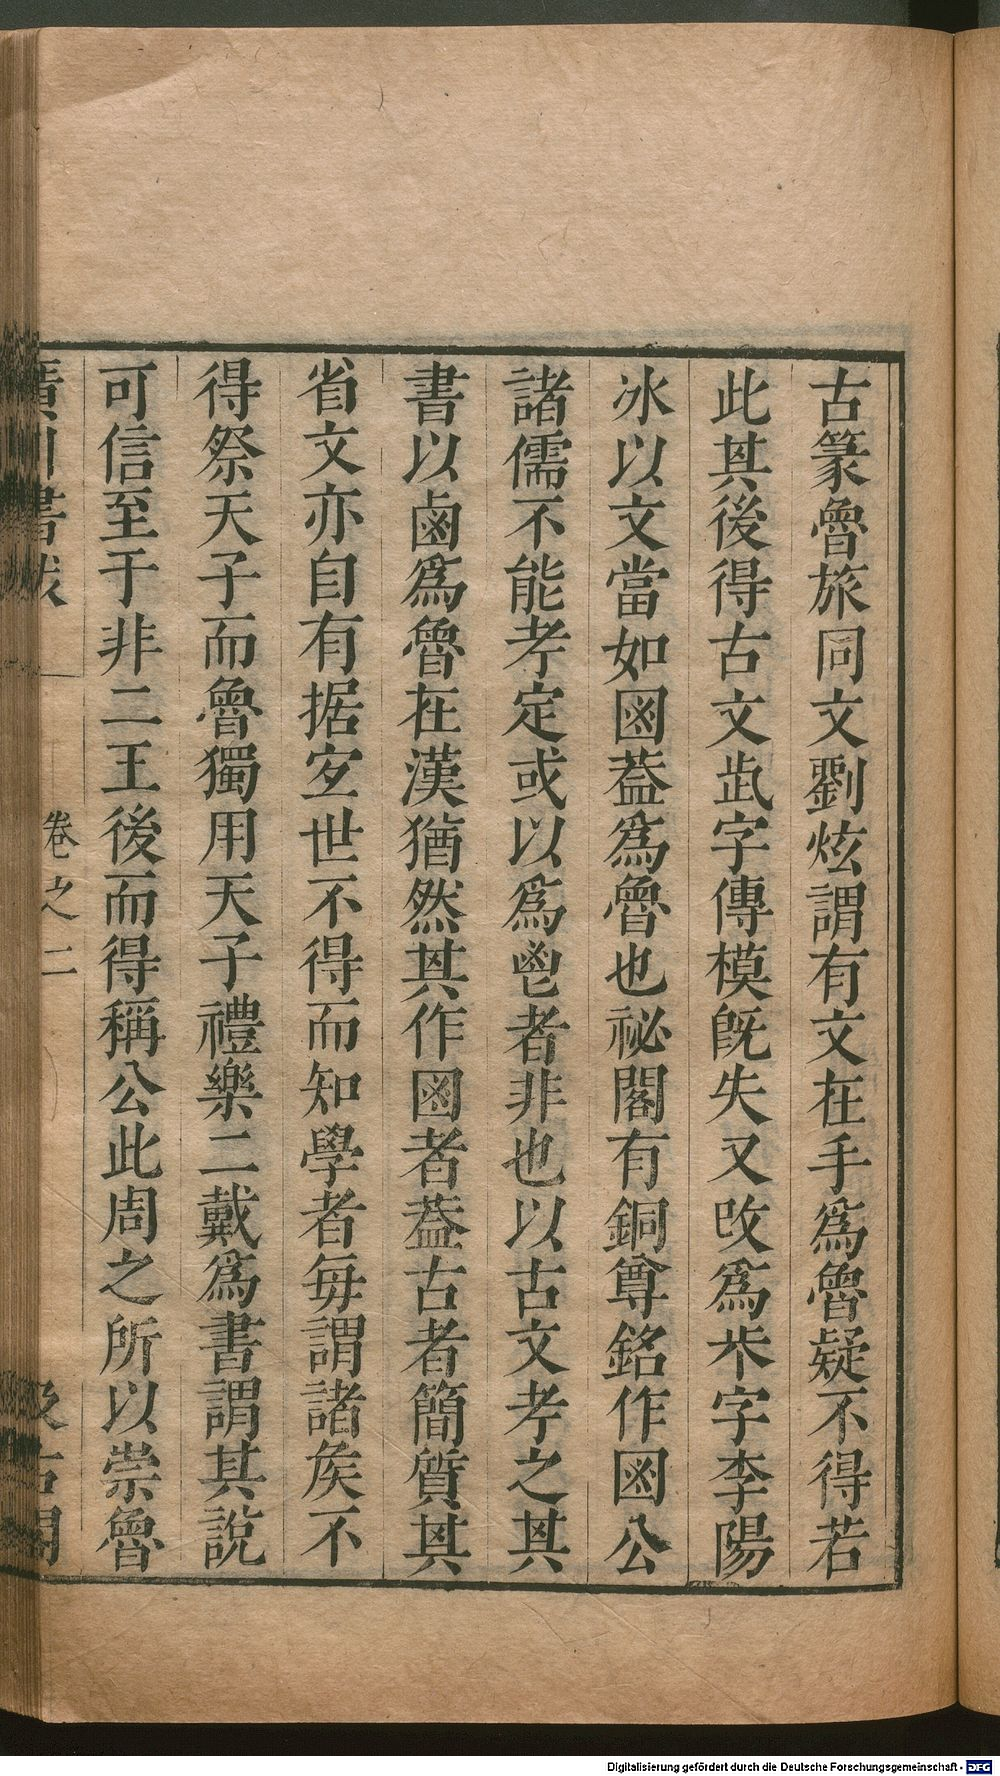 古篆魯旅同文劉炫謂有文在手爲魯疑不得若
此其後得古文字傳模旣失又改爲字李陽
冰以文當如囪葢爲魯也祕閣有銅尊銘作囪公
諸儒不能考定或以爲鬯者非也以古文考之其
書以鹵爲魯在漢猶然其作囪者葢古者簡質其
省文亦自有据㝎世不得而知學者每謂諸矦不
得祭天子而魯獨用天子禮樂二戴爲書謂其說
可信至于非二王後而得稱公此周之所以崇魯
廣川書跋
卷之二
汲古閣
Digitalisierung gefördert durch die Deutsche Forschungsgemeinschaft - DFG